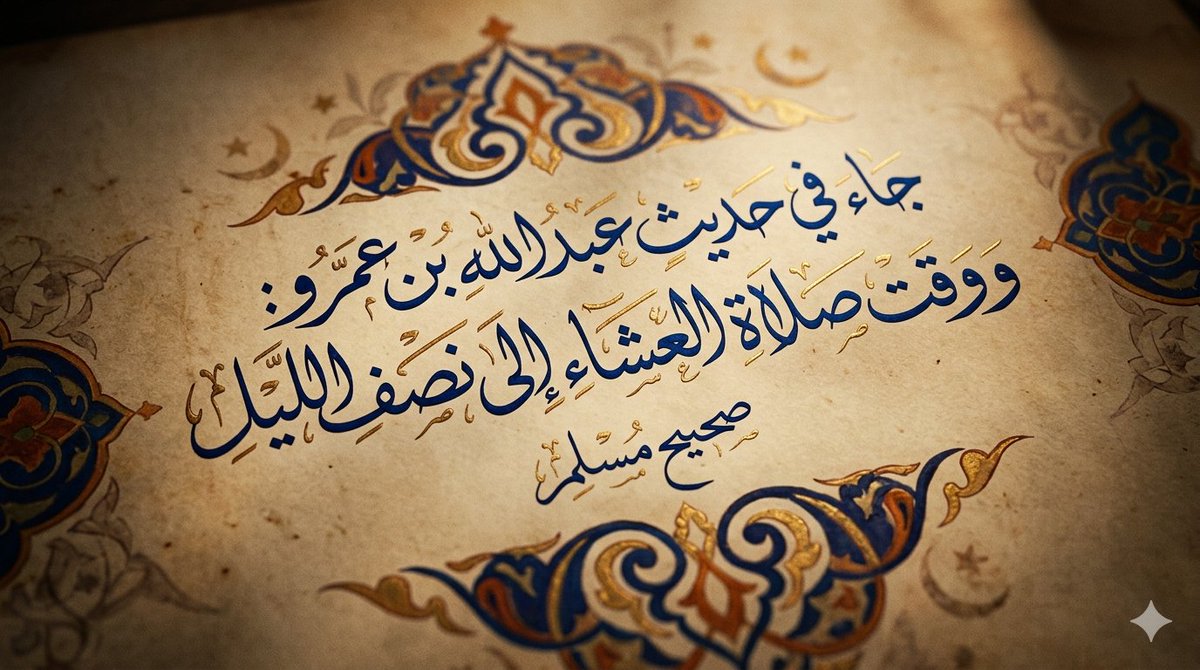 جَاءَ في حَديثِ عَبدُ اللهِ بُن عمَرَّو:
وَوَقَتَ صَلَاةِ العشَاءِ إِلَى نَصَفِ اللَّيَلِ
صحيح مُسلِم